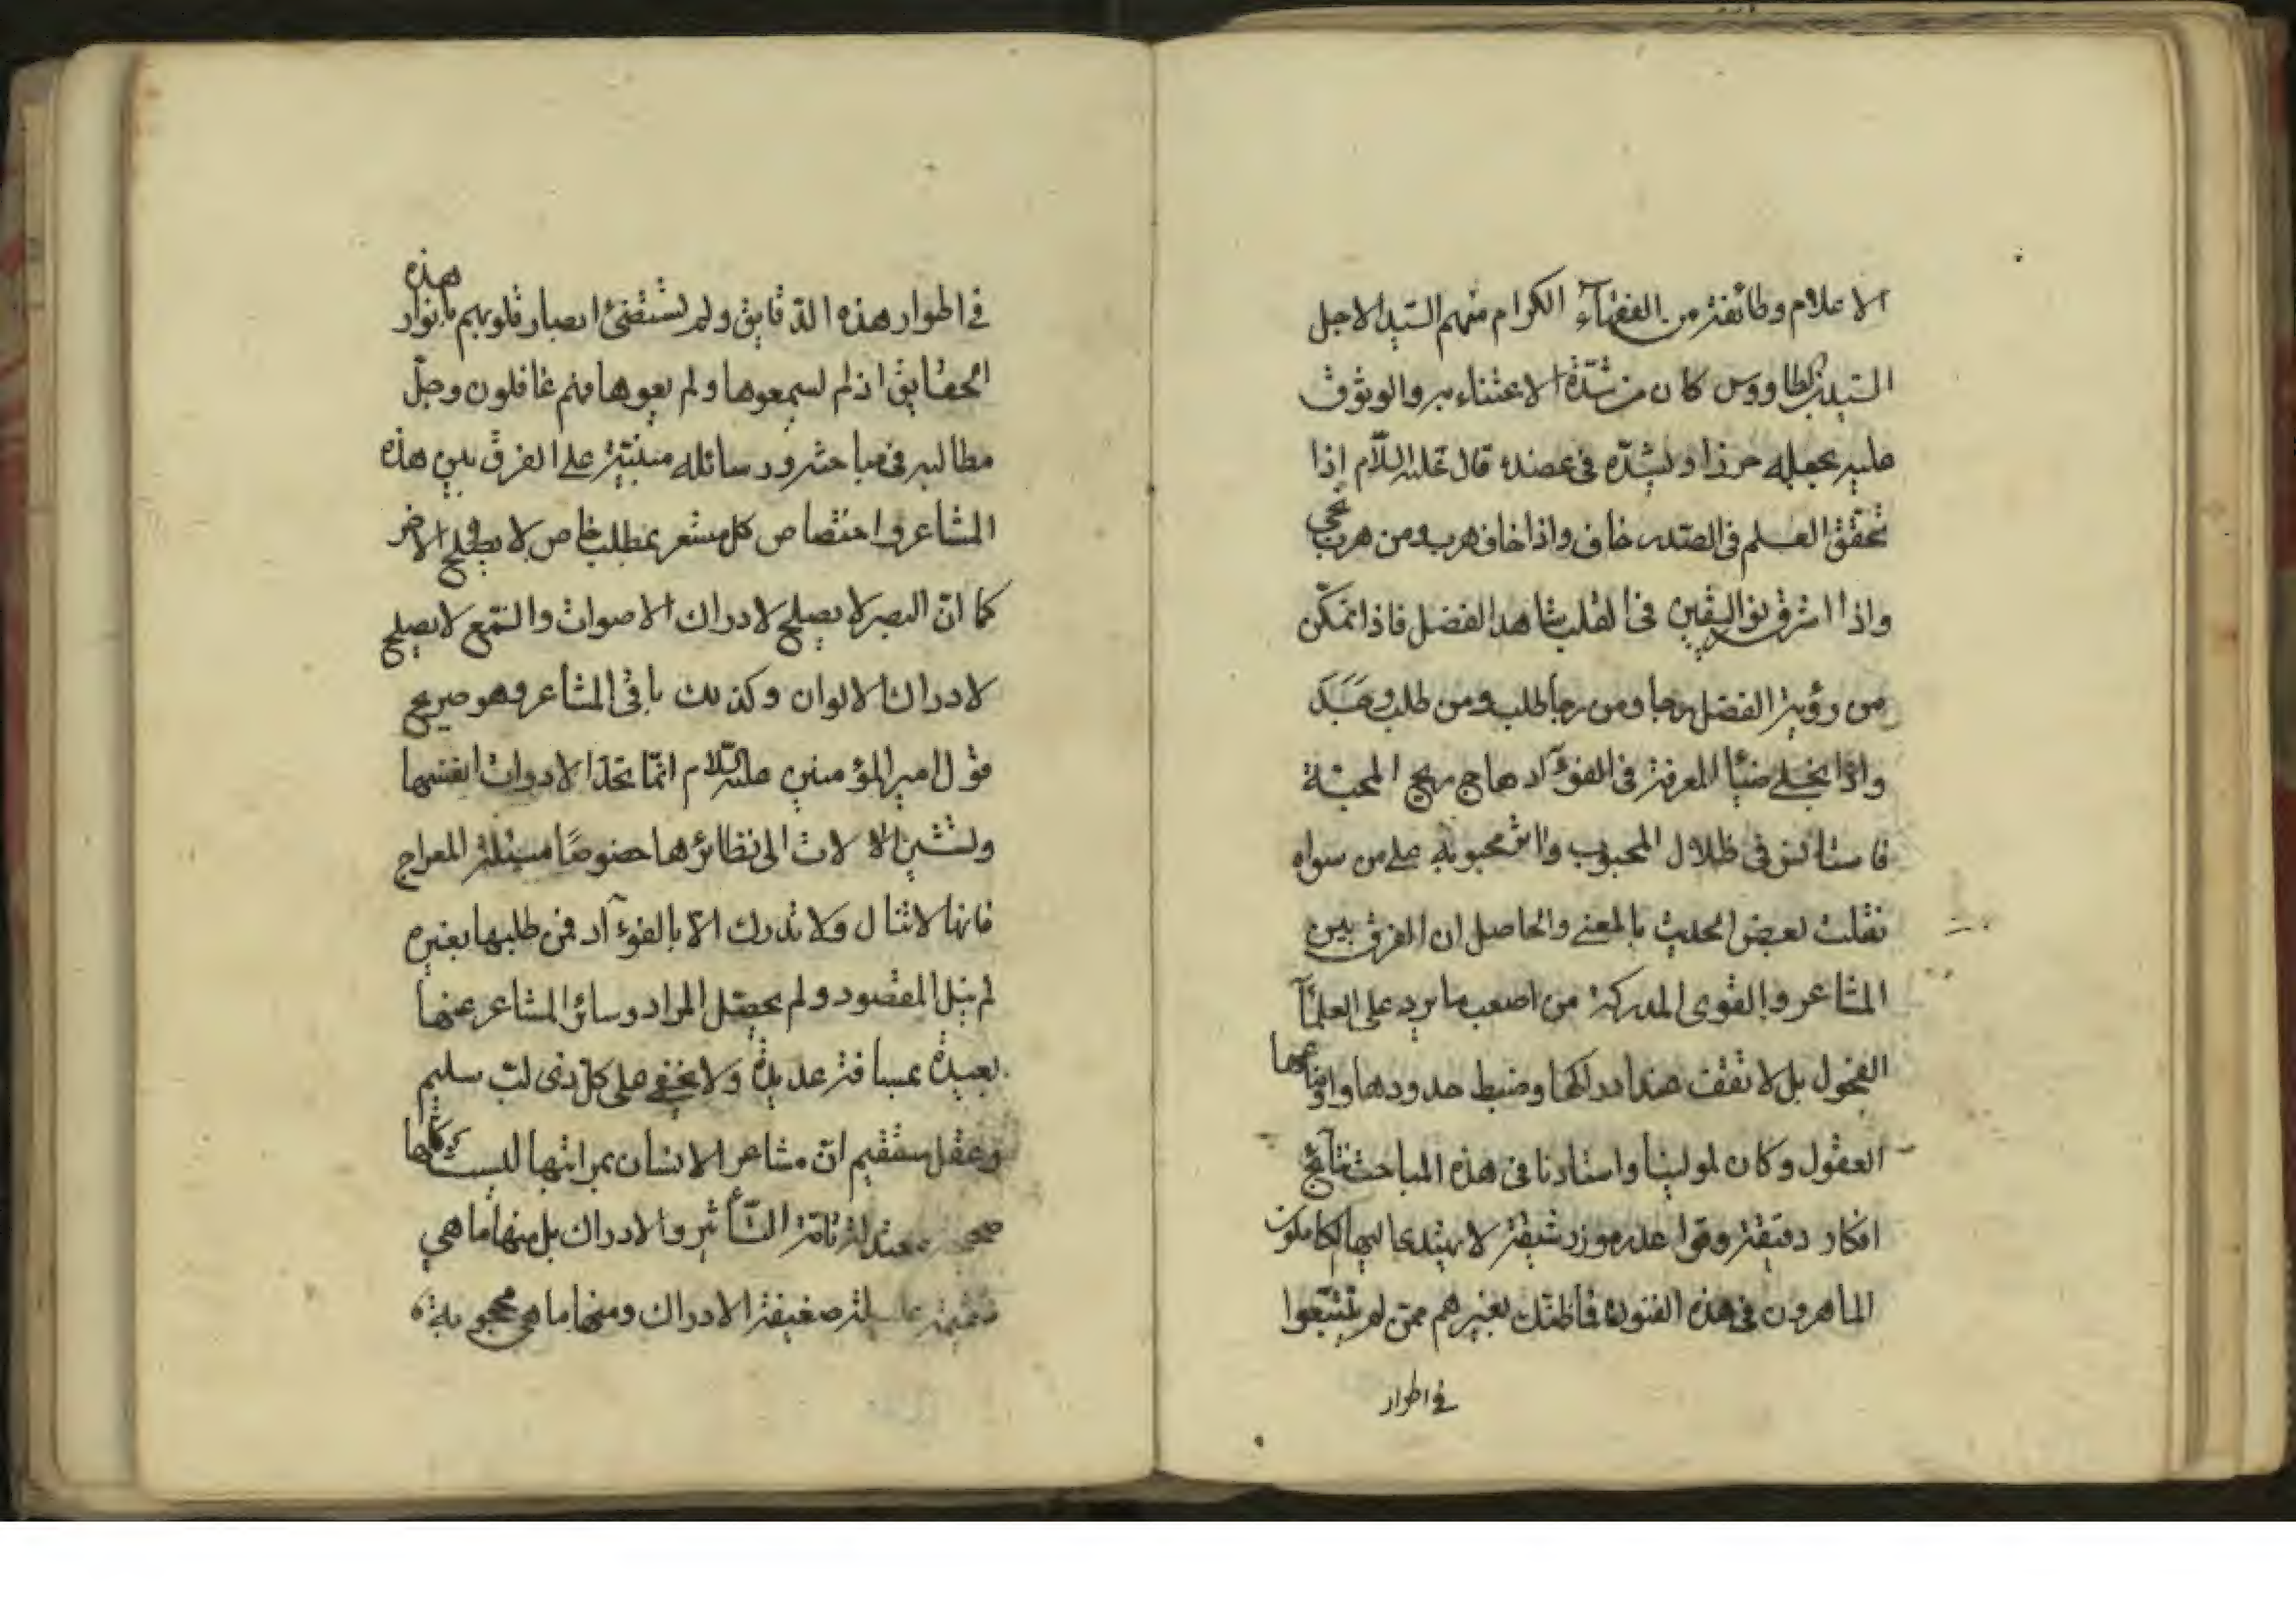 الاعلام وطائفة من الفقهاء الكرام منهم السيد الاجل
السيد بن طاووس كان من شدة الاعتناء به والوثوق
عليه يجعله حرزا ويشده في عضده قال عليه السلام اذا
تحقق العلم في الصدر خاف واذا خاف هرب ومن هرب نجى
واذا اشرق نور اليقين في القلب شاهد الفضل فاذا تمكن
من رؤية الفضل رجا ومن رجا طلب ومن طلب وجد
واذا تجلى ضياء المعرفة في الفوآد هاج ريح المحبة
فاستانس في ظلال المحبوب واثر محبوبه على من سواه
نقلت بعض الحديث بالمعنى والحاصل ان الفرق بين
المشاعر والقوى المدركة من اصعب ما يرد على العلمآء
الفحول بل لا تقف عند ادراكها وضبط حدودها واوضاعها
العقول وكان لمولينا واستادنا في هذه المباحث نتائج
افكار دقيقة وقواعد رموز رشيقة لا يهتدي اليها الكاملون
الماهرون في هذه الفنون فما ظنك بغيرهم ممن لم يتتبعوا
في اطوار
في اطوار هذه الدقايق ولم تستضئ ابصار قلوبهم بانوار هذه
الحقايق اذ لم يسمعوها ولم يعوها فهم غافلون وجل
مطالبه في مباحثه ورسائله مبتنية على الفرق بين هذه
المشاعر واختصاص كل مشعر بمطلب خاص لا يصلح في الاخر
كما ان البصر لا يصلح لادراك الاصوات والسمع لا يصلح
لادراك الالوان وكذلك باقي المشاعر وهو صريح
قول امير المؤمنين عليه السلام انما تحد الادوات انفسها
وتشير الالات الى نظائرها خصوصا مسئلة المعراج
فانها لا تنال ولا تدرك الا بالفوءآد فمن طلبها بغيره
لم ينل المقصود ولم يحصل المراد وسائر المشاعر عنها
بعيدة بمسافة عديدة ولا يخفى على كل ذى لب سليم
وعقل مستقيم ان مشاعر الانسان بمراتبها ليست كلها
صحيحة معتدلة تامة التأثير والادراك بل منها ما هي
ضعيفة الادراك ومنها ما هي محجوبة